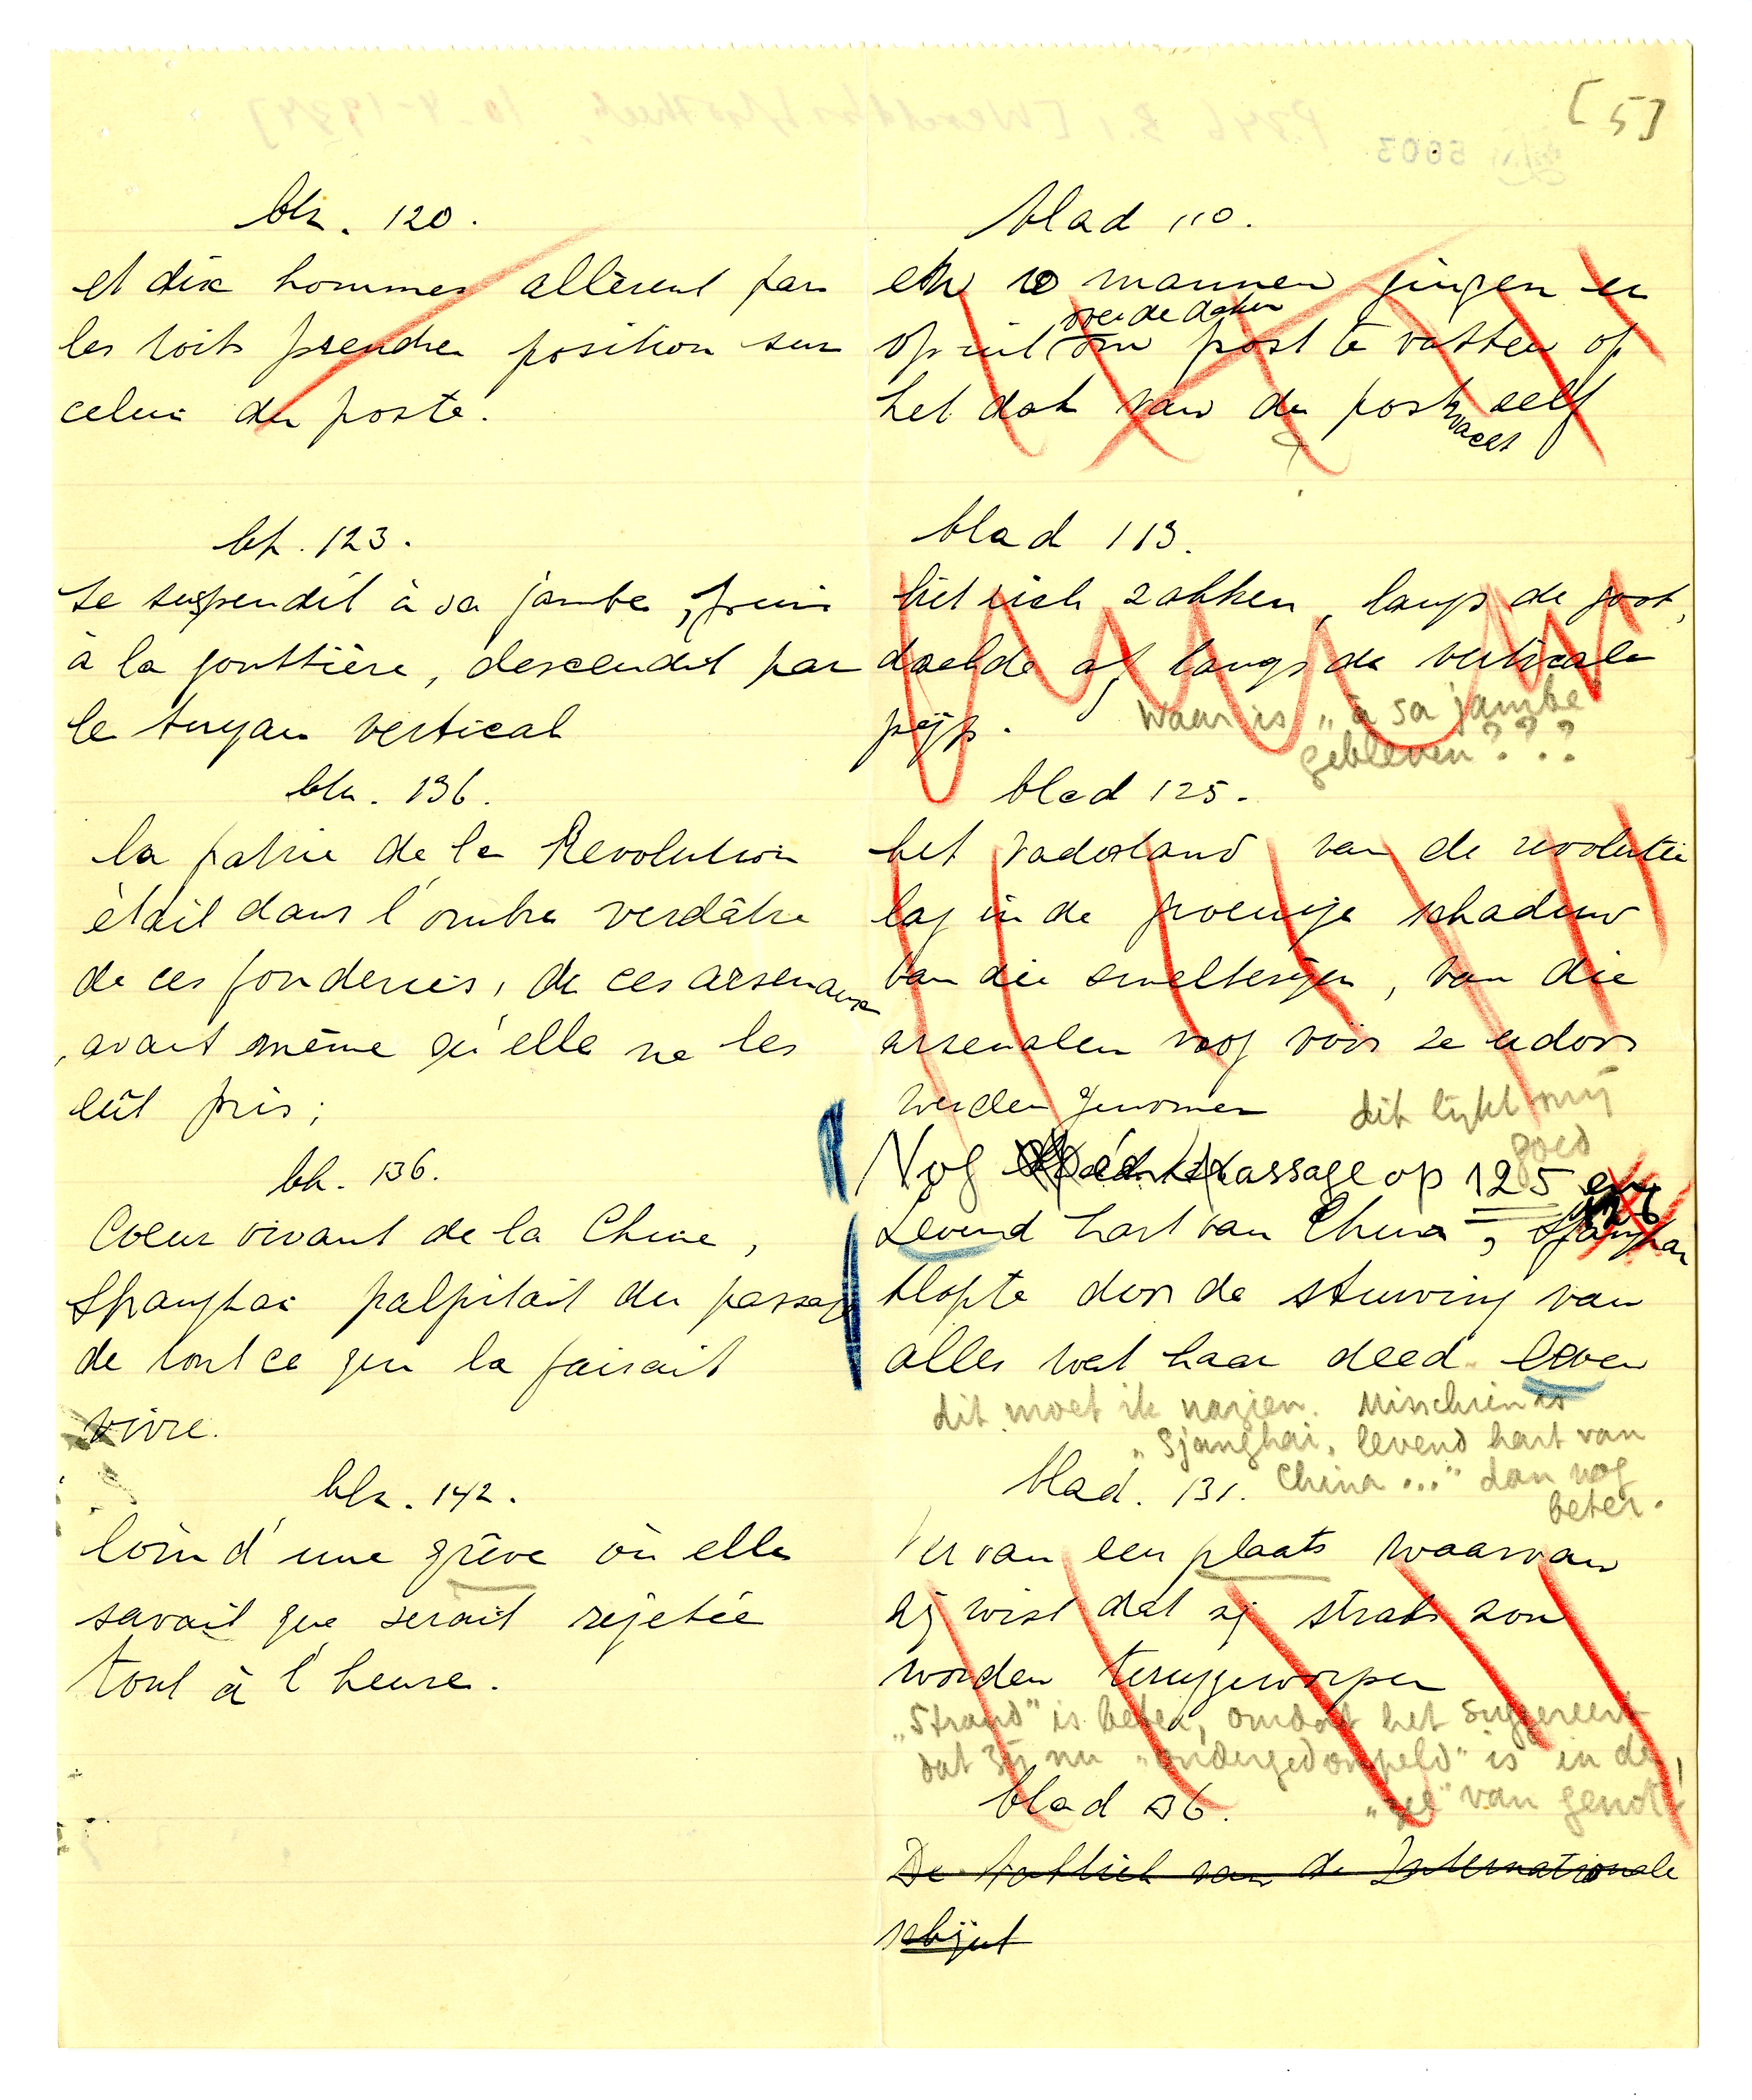 [5]
blz. 120.
et dix hommes allèrent par
les toits prendre position sur
celui du poste.
blz. 123.
se suspendit à sa jambe, puis
à la gouttière, descendit par
le tuyau vertical
blz. 136.
la patrie de la Revolution
était dans l'ombre verdâtre
de ces fonderies, de ces arsenaux
, avant même qu'elle ne les
eût pris;
blz. 136.
Coeur vivant de la Chine,
Shanghai palpitait du passage
de tout ce qui la faisait
vivre.
blz. 142.
loin d'une grève où elle
savait que serait rejetée
tout à l'heure.
blad 110.
en 10 mannen gingen er
over de daken
op uit om post te vatten op
het dak van de post zelf
wacht
blad 113.
liet zich zakken, langs de goot,
daalde af langs de verticale
pijp.
Waar is „à sa jambe"
gebleven???
blad 125.
het vaderland van de revolutie
lag in de groenige schaduw
van die smelterijen, van die
arsenalen nog vóór ze erdoor
werden genomen
dit lijkt mij
goed
Nog één passage op 125 en
126
Levend hart van China, Sjanghai
klopte door de stuwing van
alles wat haar deed leven
dit moet ik nazien. Misschien is
„Sjanghai, levend hart van
China..." dan nog
beter.
blad. 131.
Ver van een plaats waarvan
zij wist dat zij straks zou
worden teruggeworpen
„Strand" is beter, omdat het suggereert
dat zij nu „ondergedompeld" is in de
„zee" van genot!
blad 136.
De taktiek van de Internationale
schijnt